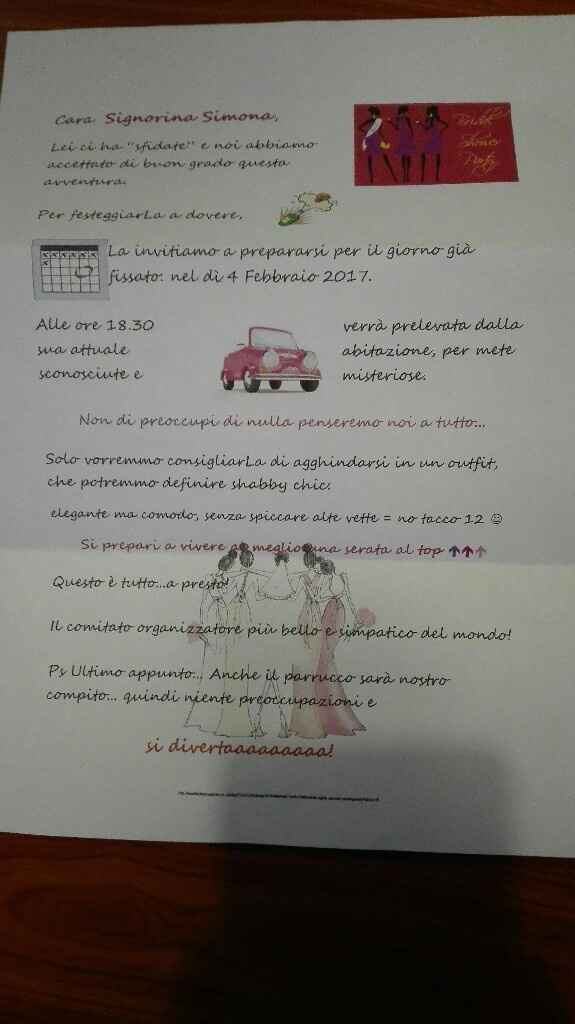 Cara Signorina Simona,
Bridal
Shower
Party
Lei ci ha "sfidate" e noi abbiamo
accettato di buon grado questa
avventura.
Per festeggiarLa a dovere,
La invitiamo a prepararsi per il giorno già
fissato: nel dì 4 Febbraio 2017.
Alle ore 18.30 verrà prelevata dalla
sua attuale abitazione, per mete
sconosciute e misteriose.
Non di preoccupi di nulla penseremo noi a tutto...
Solo vorremmo consigliarLa di agghindarsi in un outfit,
che potremmo definire shabby chic:
elegante ma comodo, senza spiccare alte vette = no tacco 12 ☺
Si prepari a vivere al meglio una serata al top ↑↑↑
Questo è tutto...a presto!
Il comitato organizzatore più bello e simpatico del mondo!
Ps Ultimo appunto... Anche il parrucco sarà nostro
compito... quindi niente preoccupazioni e
si divertaaaaaaaaa!